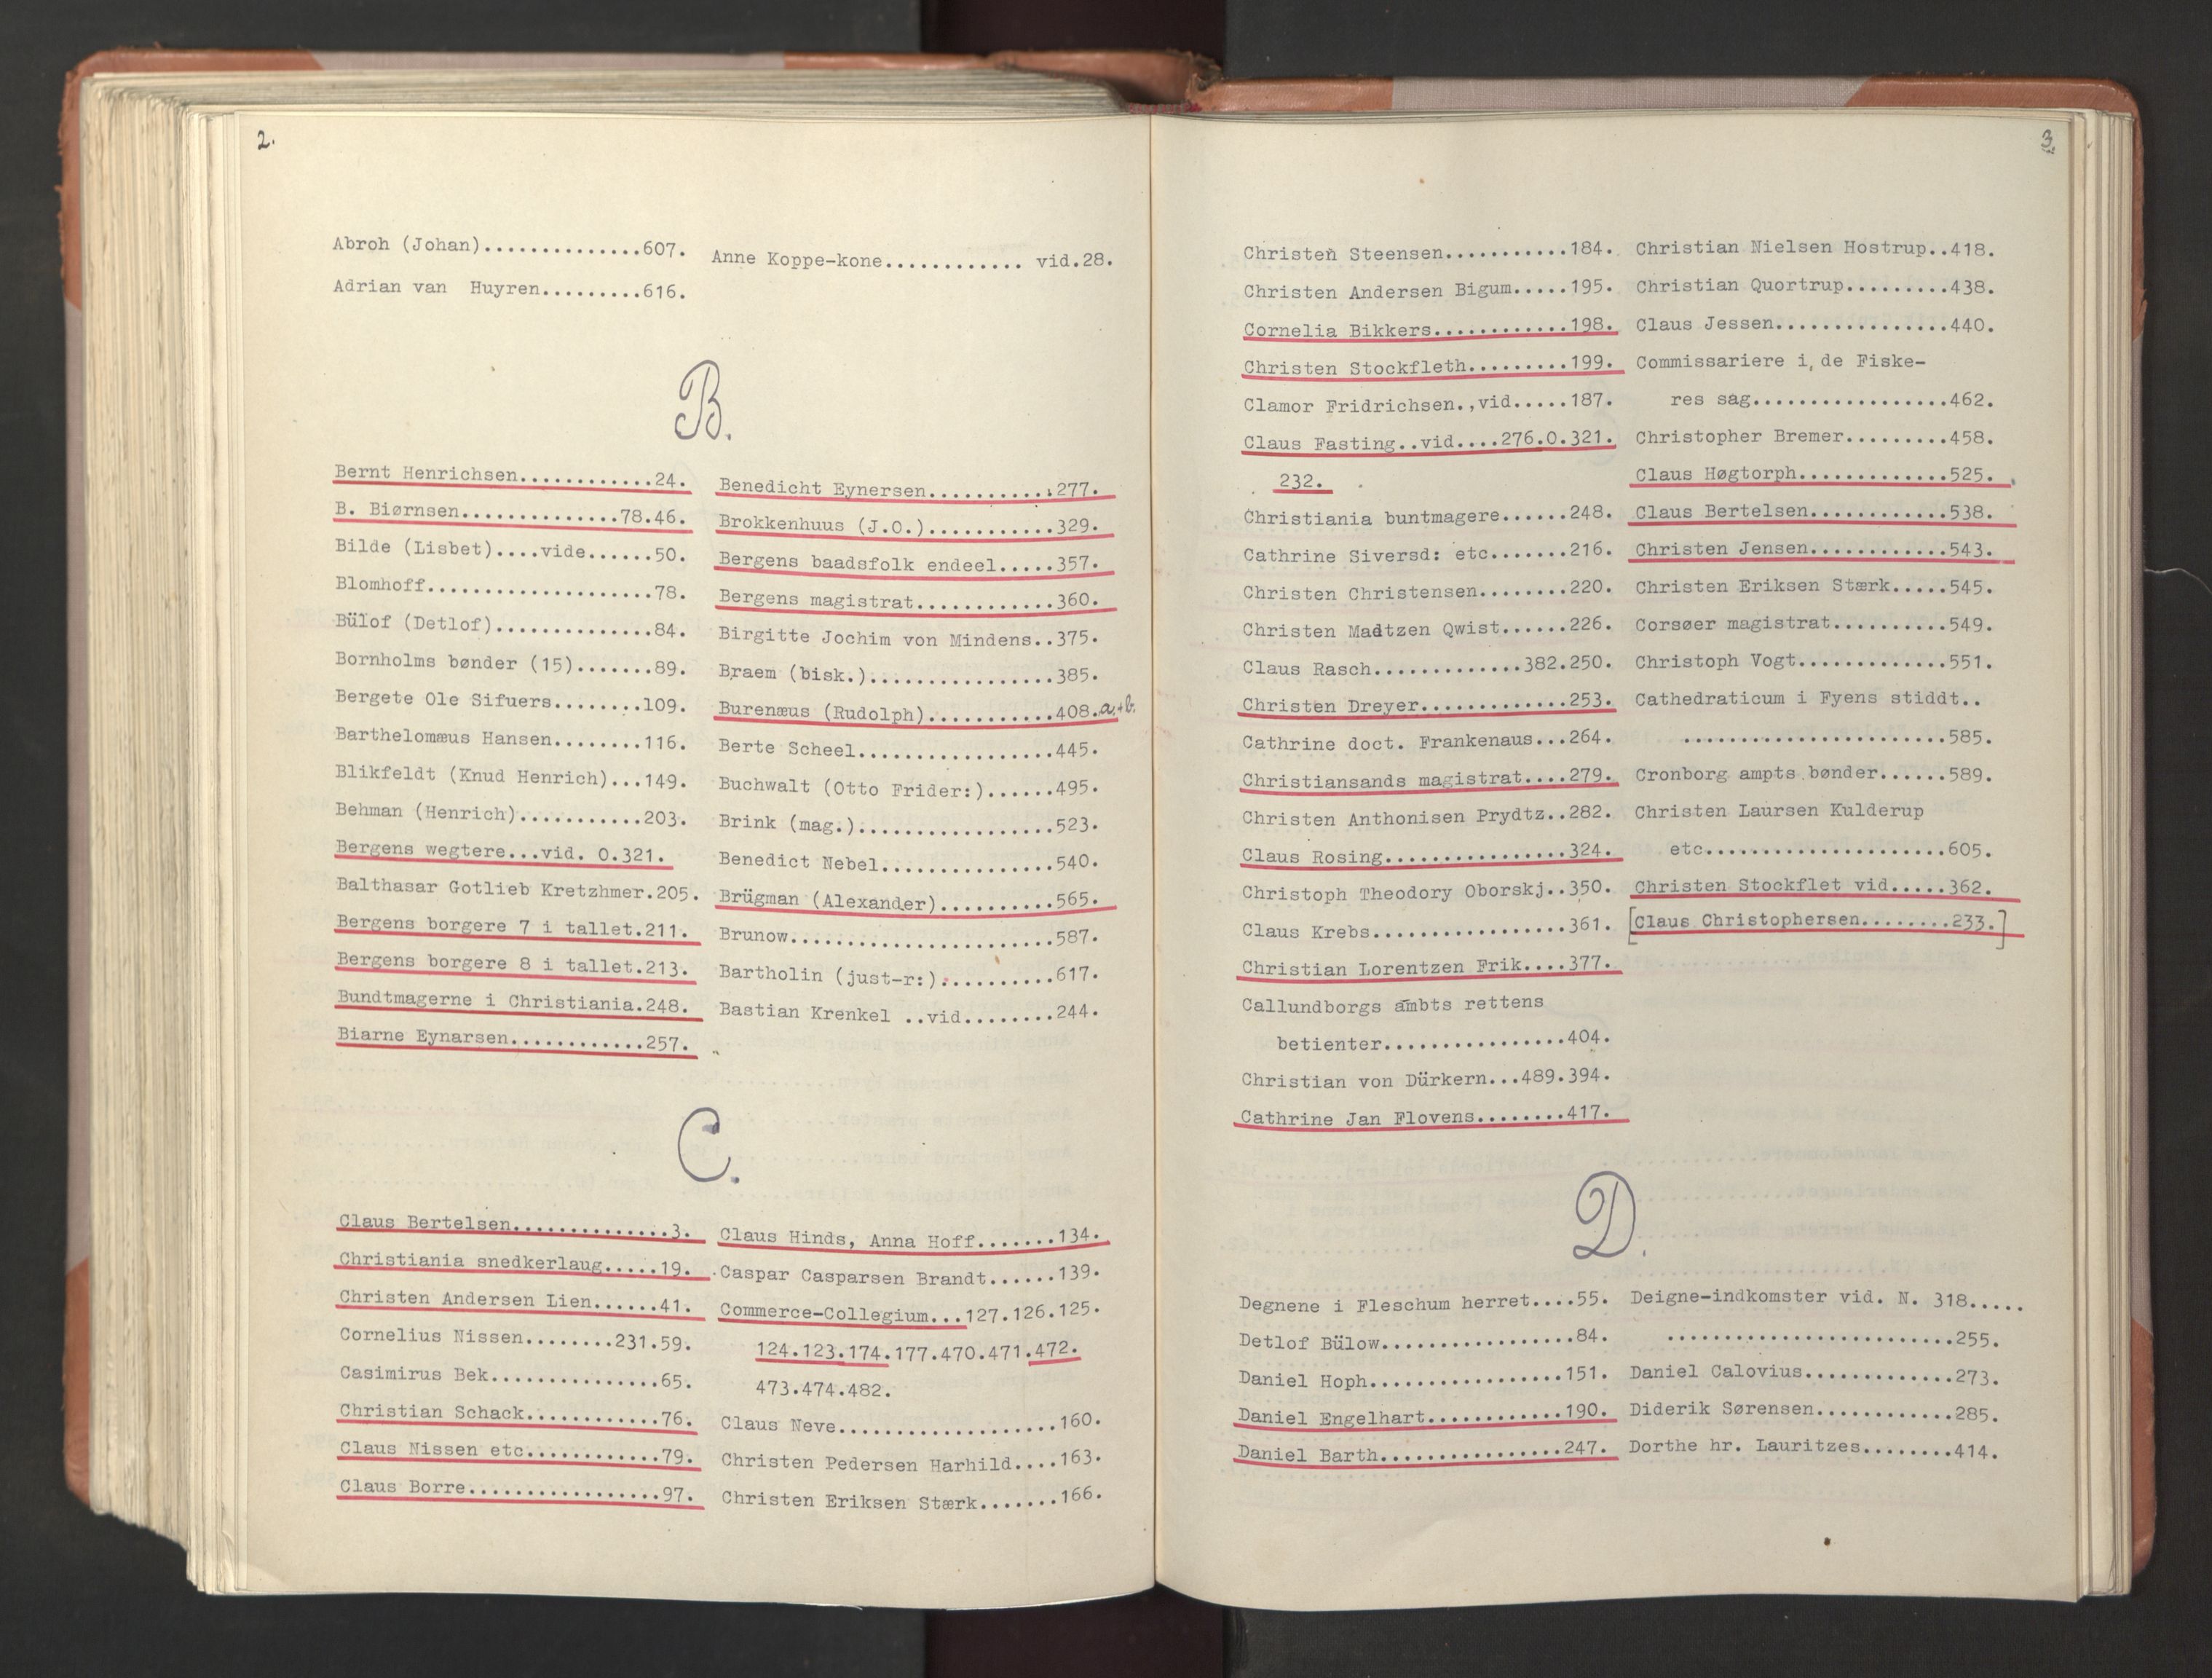 2.
Abroh (Johan)..............607.
Adrian van Huyren.........616.
Anne Koppe-kone............ vid.28.
B.
Bernt Henrichsen............24.
B. Biørnsen..............78.46.
Bilde (Lisbet)....vide......50.
Blomhoff....................78.
Bülof (Detlof)..............84.
Bornholms bønder (15).......89.
Bergete Ole Sifuers........109.
Barthelomæus Hansen........116.
Blikfeldt (Knud Henrich)...149.
Behman (Henrich)...........203.
Bergens wegtere...vid. O.321.
Balthasar Gotlieb Kretzhmer.205.
Bergens borgere 7 i tallet.211.
Bergens borgere 8 i tallet.213.
Bundtmagerne i Christiania.248.
Biarne Eynarsen............257.
Benedicht Eynersen...........277.
Brokkenhuus (J.O.)...........329.
Bergens baadsfolk endeel.....357.
Bergens magistrat............360.
Birgitte Jochim von Mindens..375.
Braem (bisk.)................385.
Burenæus (Rudolph)...........408.a.+b.
Berte Scheel.................445.
Buchwalt (Otto Frider:)......495.
Brink (mag.).................523.
Benedict Nebel...............540.
Brügman (Alexander)..........565.
Brunow.......................587.
Bartholin (just-r:)..........617.
Bastian Krenkel ..vid........244.
C.
Claus Bertelsen..............3.
Christiania snedkerlaug.....19.
Christen Andersen Lien......41.
Cornelius Nissen........231.59.
Casimirus Bek...............65.
Christian Schack............76.
Claus Nissen etc............79.
Claus Borre.................97.
Claus Hinds, Anna Hoff.......134.
Caspar Casparsen Brandt......139.
Commerce-Collegium...127.126.125.
124.123.174.177.470.471.472.
473.474.482.
Claus Neve...................160.
Christen Pedersen Harhild....163.
Christen Eriksen Stærk.......166.
3.
Christen Steensen...........184.
Christen Andersen Bigum.....195.
Cornelia Bikkers............198.
Christen Stockfleth.........199.
Clamor Fridrichsen.,vid.....187.
Claus Fasting..vid....276.O.321.
232.
Christiania buntmagere......248.
Cathrine Siversd: etc.......216.
Christen Christensen........220.
Christen Madtzen Qwist......226.
Claus Rasch.............382.250.
Christen Dreyer.............253.
Cathrine doct. Frankenaus...264.
Christiansands magistrat....279.
Christen Anthonisen Prydtz..282.
Claus Rosing................324.
Christoph Theodory Oborskj..350.
Claus Krebs.................361.
Christian Lorentzen Frik....377.
Callundborgs ambts rettens
betienter................404.
Christian von Dürkern...489.394.
Cathrine Jan Flovens........417.
Christian Nielsen Hostrup..418.
Christian Quortrup.........438.
Claus Jessen...............440.
Commissariere i, de Fiske-
res sag.................462.
Christopher Bremer.........458.
Claus Høgtorph.............525.
Claus Bertelsen............538.
Christen Jensen............543.
Christen Eriksen Stærk.....545.
Corsøer magistrat..........549.
Christoph Vogt.............551.
Cathedraticum i Fyens stiddt..
.......................585.
Cronborg ampts bønder......589.
Christen Laursen Kulderup
etc.....................605.
Christen Stockflet vid.....362.
[Claus Christophersen........233.]
D.
Degnene i Fleschum herret....55.
Detlof Bülow.................84.
Daniel Hoph.................151.
Daniel Engelhart............190.
Daniel Barth................247.
Deigne-indkomster vid. N. 318.....
.........................255.
Daniel Calovius.............273.
Diderik Sørensen............285.
Dorthe hr. Lauritzes........414.